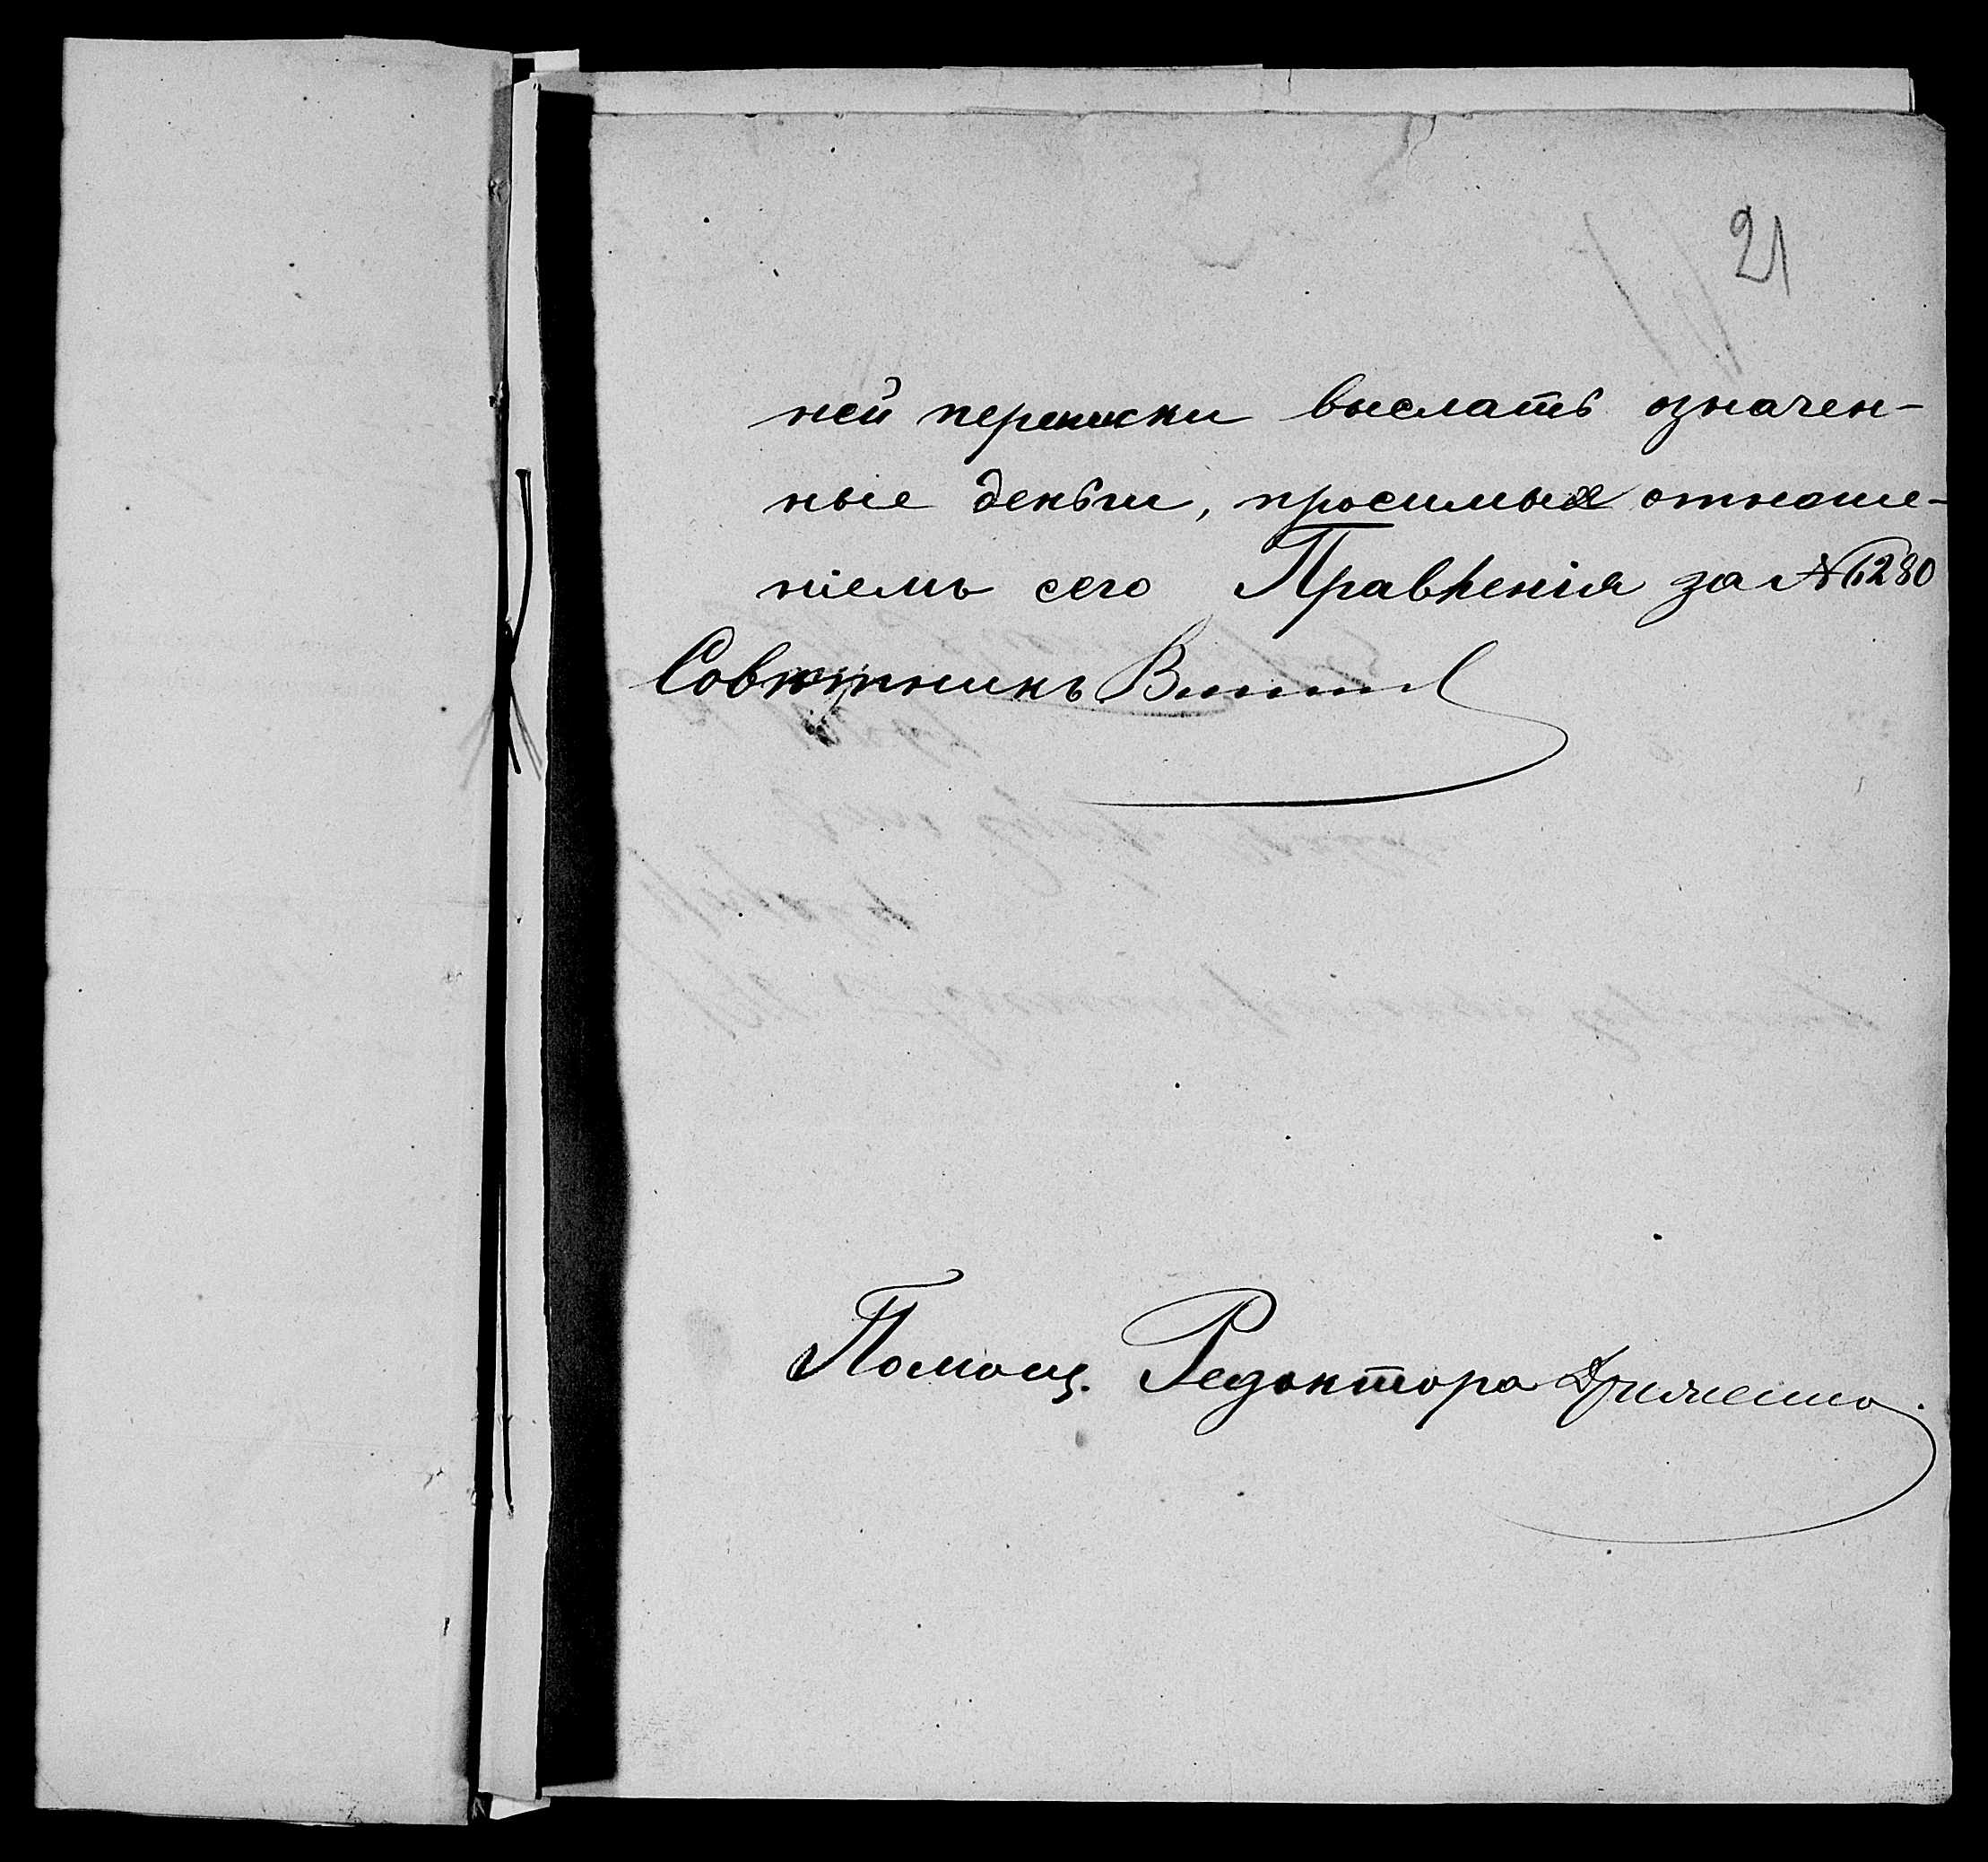 21
ней переписки выслать означен-
ные деньги, просимыя отноше-
ніемъ сего Правленія за № 1280
Совѣтникъ
Помощ. Редактора